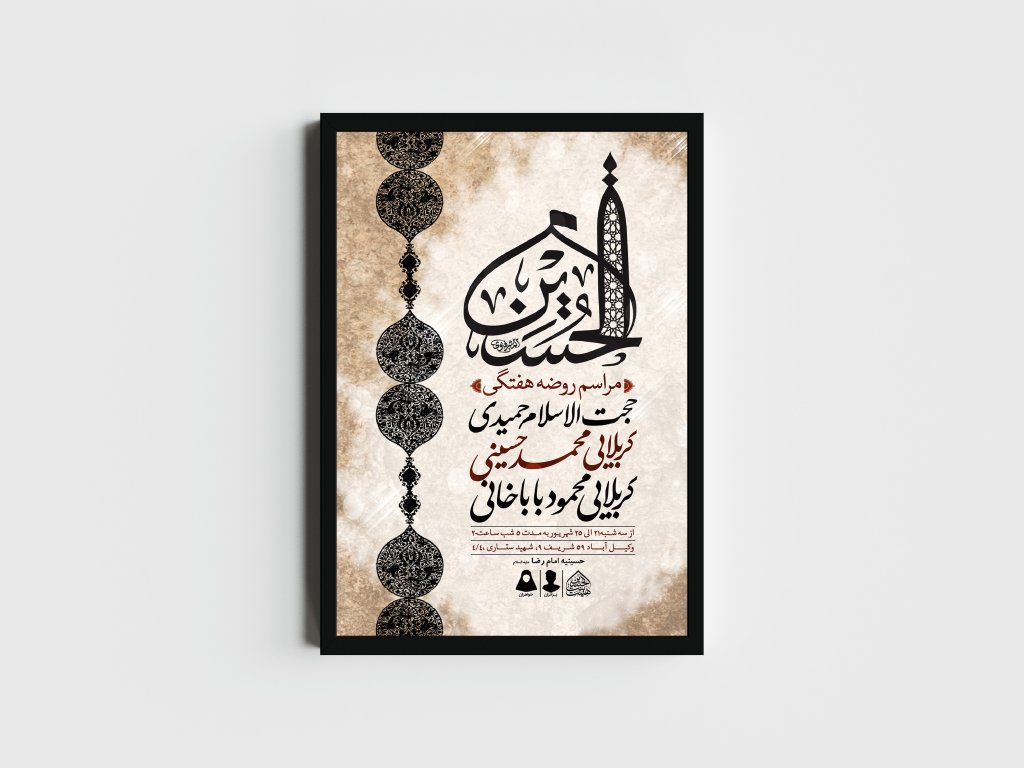 الحسین
مراسم روضه هفتگی
حجت الاسلام حمیدی
کربلایی محمد حسینی
کربلایی محمود باباخانی
از سه شنبه ۲۱ الی ۲۵ شهریور به مدت ۵ شب ساعت ۲۰
وکیل آباد ۵۹ شریف ۹، شهید ستاری ۴/۴۰
حسینیه امام رضا علیه السلام
برادران
خواهران